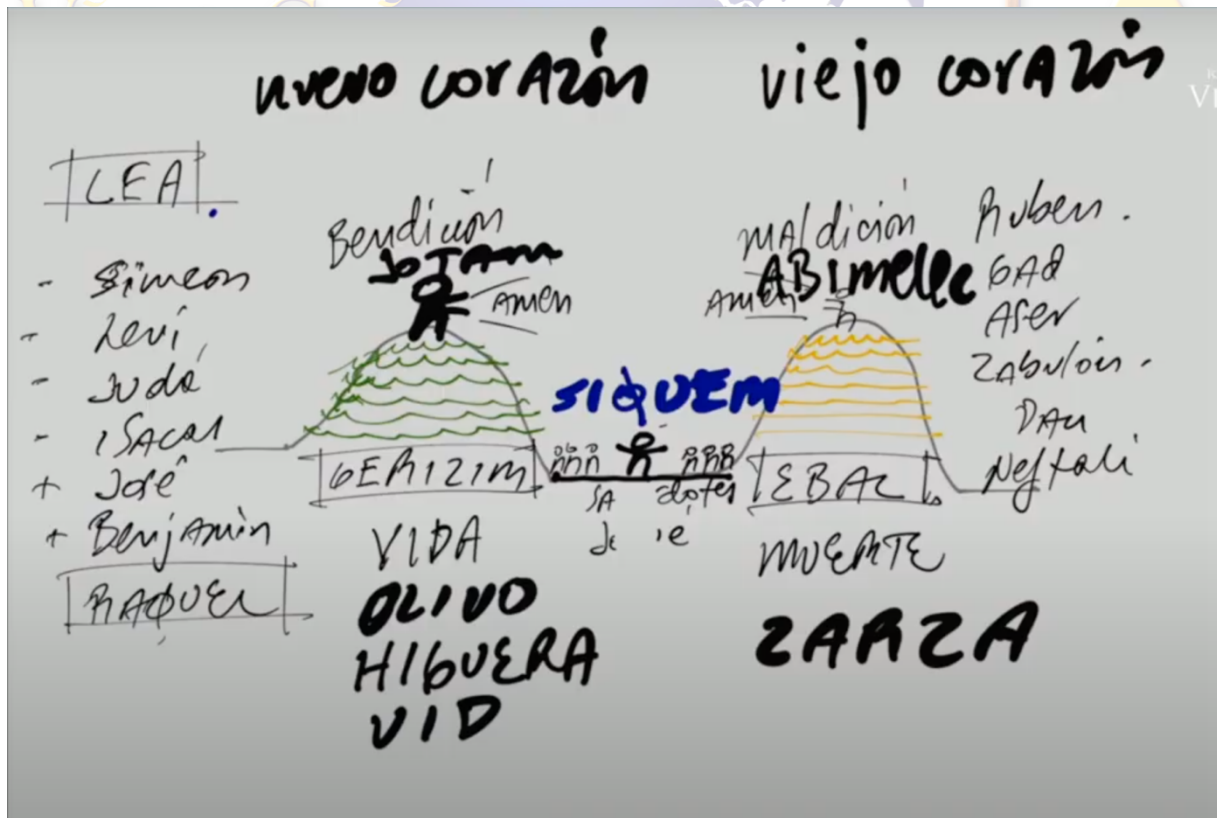 nuevo corazón
viejo corazón
LEA
- Simeon
- Leví
- Judá
- ISACAR
+ José
+ Benjamin
RAQUEL
Bendición
JOTAM
AMEN
GERIZIM
VIDA
OLIVO
HIGUERA
VID
SIQUEM
MALdición
ABIMElec
Amen
EBAL
MUERTE
ZARZA
Ruben.
GAd
ASer
ZAbulón.
DAN
Neftali